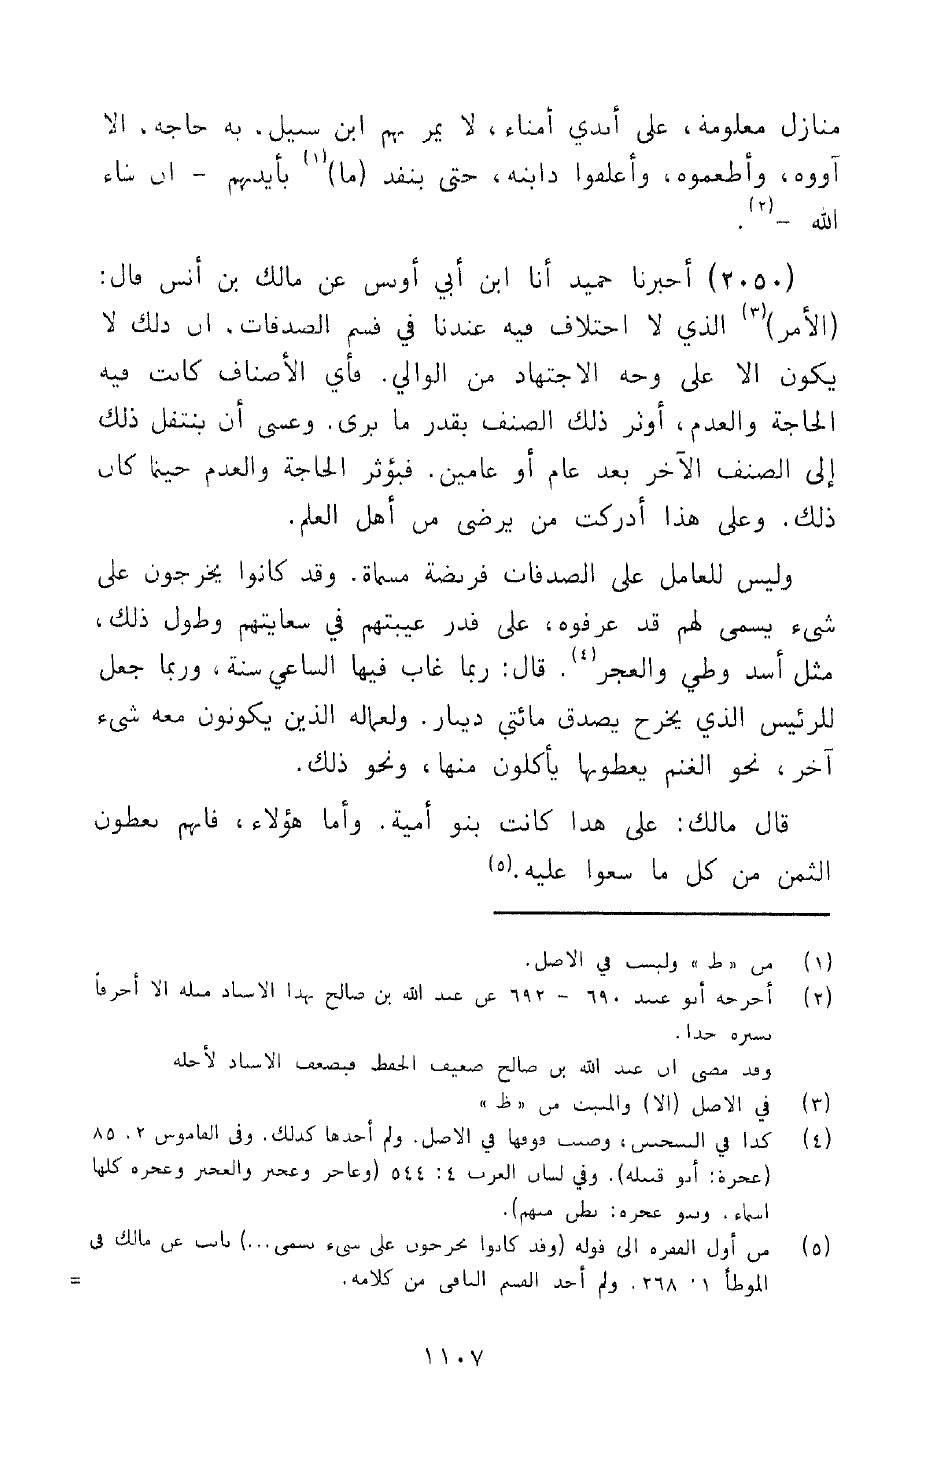 منازل معلومة، على أيدي أمناء، لا يمر بهم ابن سبيل، به حاجه، الا
آووه، وأطعموه، وأعلفوا دابته، حتى ينفد (ما)(١) بأيديهم - ان شاء
الله -(٢).
(٢٠٥٠) أخبرنا حميد أنا ابن أبي أويس عن مالك بن أنس قال:
(الأمر)(٣) الذي لا اختلاف فيه عندنا في قسم الصدقات، ان ذلك لا
يكون الا على وجه الاجتهاد من الوالي. فأي الأصناف كانت فيه
الحاجة والعدم، أوثر ذلك الصنف بقدر ما يرى. وعسى أن ينتقل ذلك
إلى الصنف الآخر بعد عام أو عامين. فيؤثر الحاجة والعدم حيثما كان
ذلك. وعلى هذا أدركت من يرضى من أهل العلم.
وليس للعامل على الصدقات فريضة مسماة. وقد كانوا يخرجون على
شيء يسمى لهم قد عرفوه، على قدر غيبتهم في سعايتهم وطول ذلك،
مثل أسد وطي والعجر(٤). قال: ربما غاب فيها الساعي سنة، وربما جعل
للرئيس الذي يخرج يصدق مائتي دينار. ولعماله الذين يكونون معه شيء
آخر، نحو الغنم يعطونها يأكلون منها، ونحو ذلك.
قال مالك: على هذا كانت بنو أمية. وأما هؤلاء، فانهم يعطون
الثمن من كل ما سعوا عليه.(٥)
(١) من «ظ» وليست في الاصل.
(٢) أخرجه أبو عبيد ٦٩٠ - ٦٩٢ عن عبد الله بن صالح بهذا الاسناد مثله الا أحرفا
يسيره جدا.
وقد مضى ان عبد الله بن صالح ضعيف الحفظ فيضعف الاسناد لأجله
(٣) في الاصل (الا) والمثبت من «ظ»
(٤) كذا في النسختين، وضبب فوقها في الاصل. ولم أجدها كذلك. وفي القاموس ٢: ٨٥
(عجرة: أبو قبيله). وفي لسان العرب ٤: ٥٤٤ (وعاجر وعجير والعجير وعجره كلها
اسماء. وبنو عجره: بطن منهم).
(٥) من أول الفقره الى قوله (وقد كانوا يخرجون على شيء يسمى...) ثابت عن مالك في
الموطأ ١: ٢٦٨. ولم أجد القسم الباقي من كلامه.
=
١١٠٧